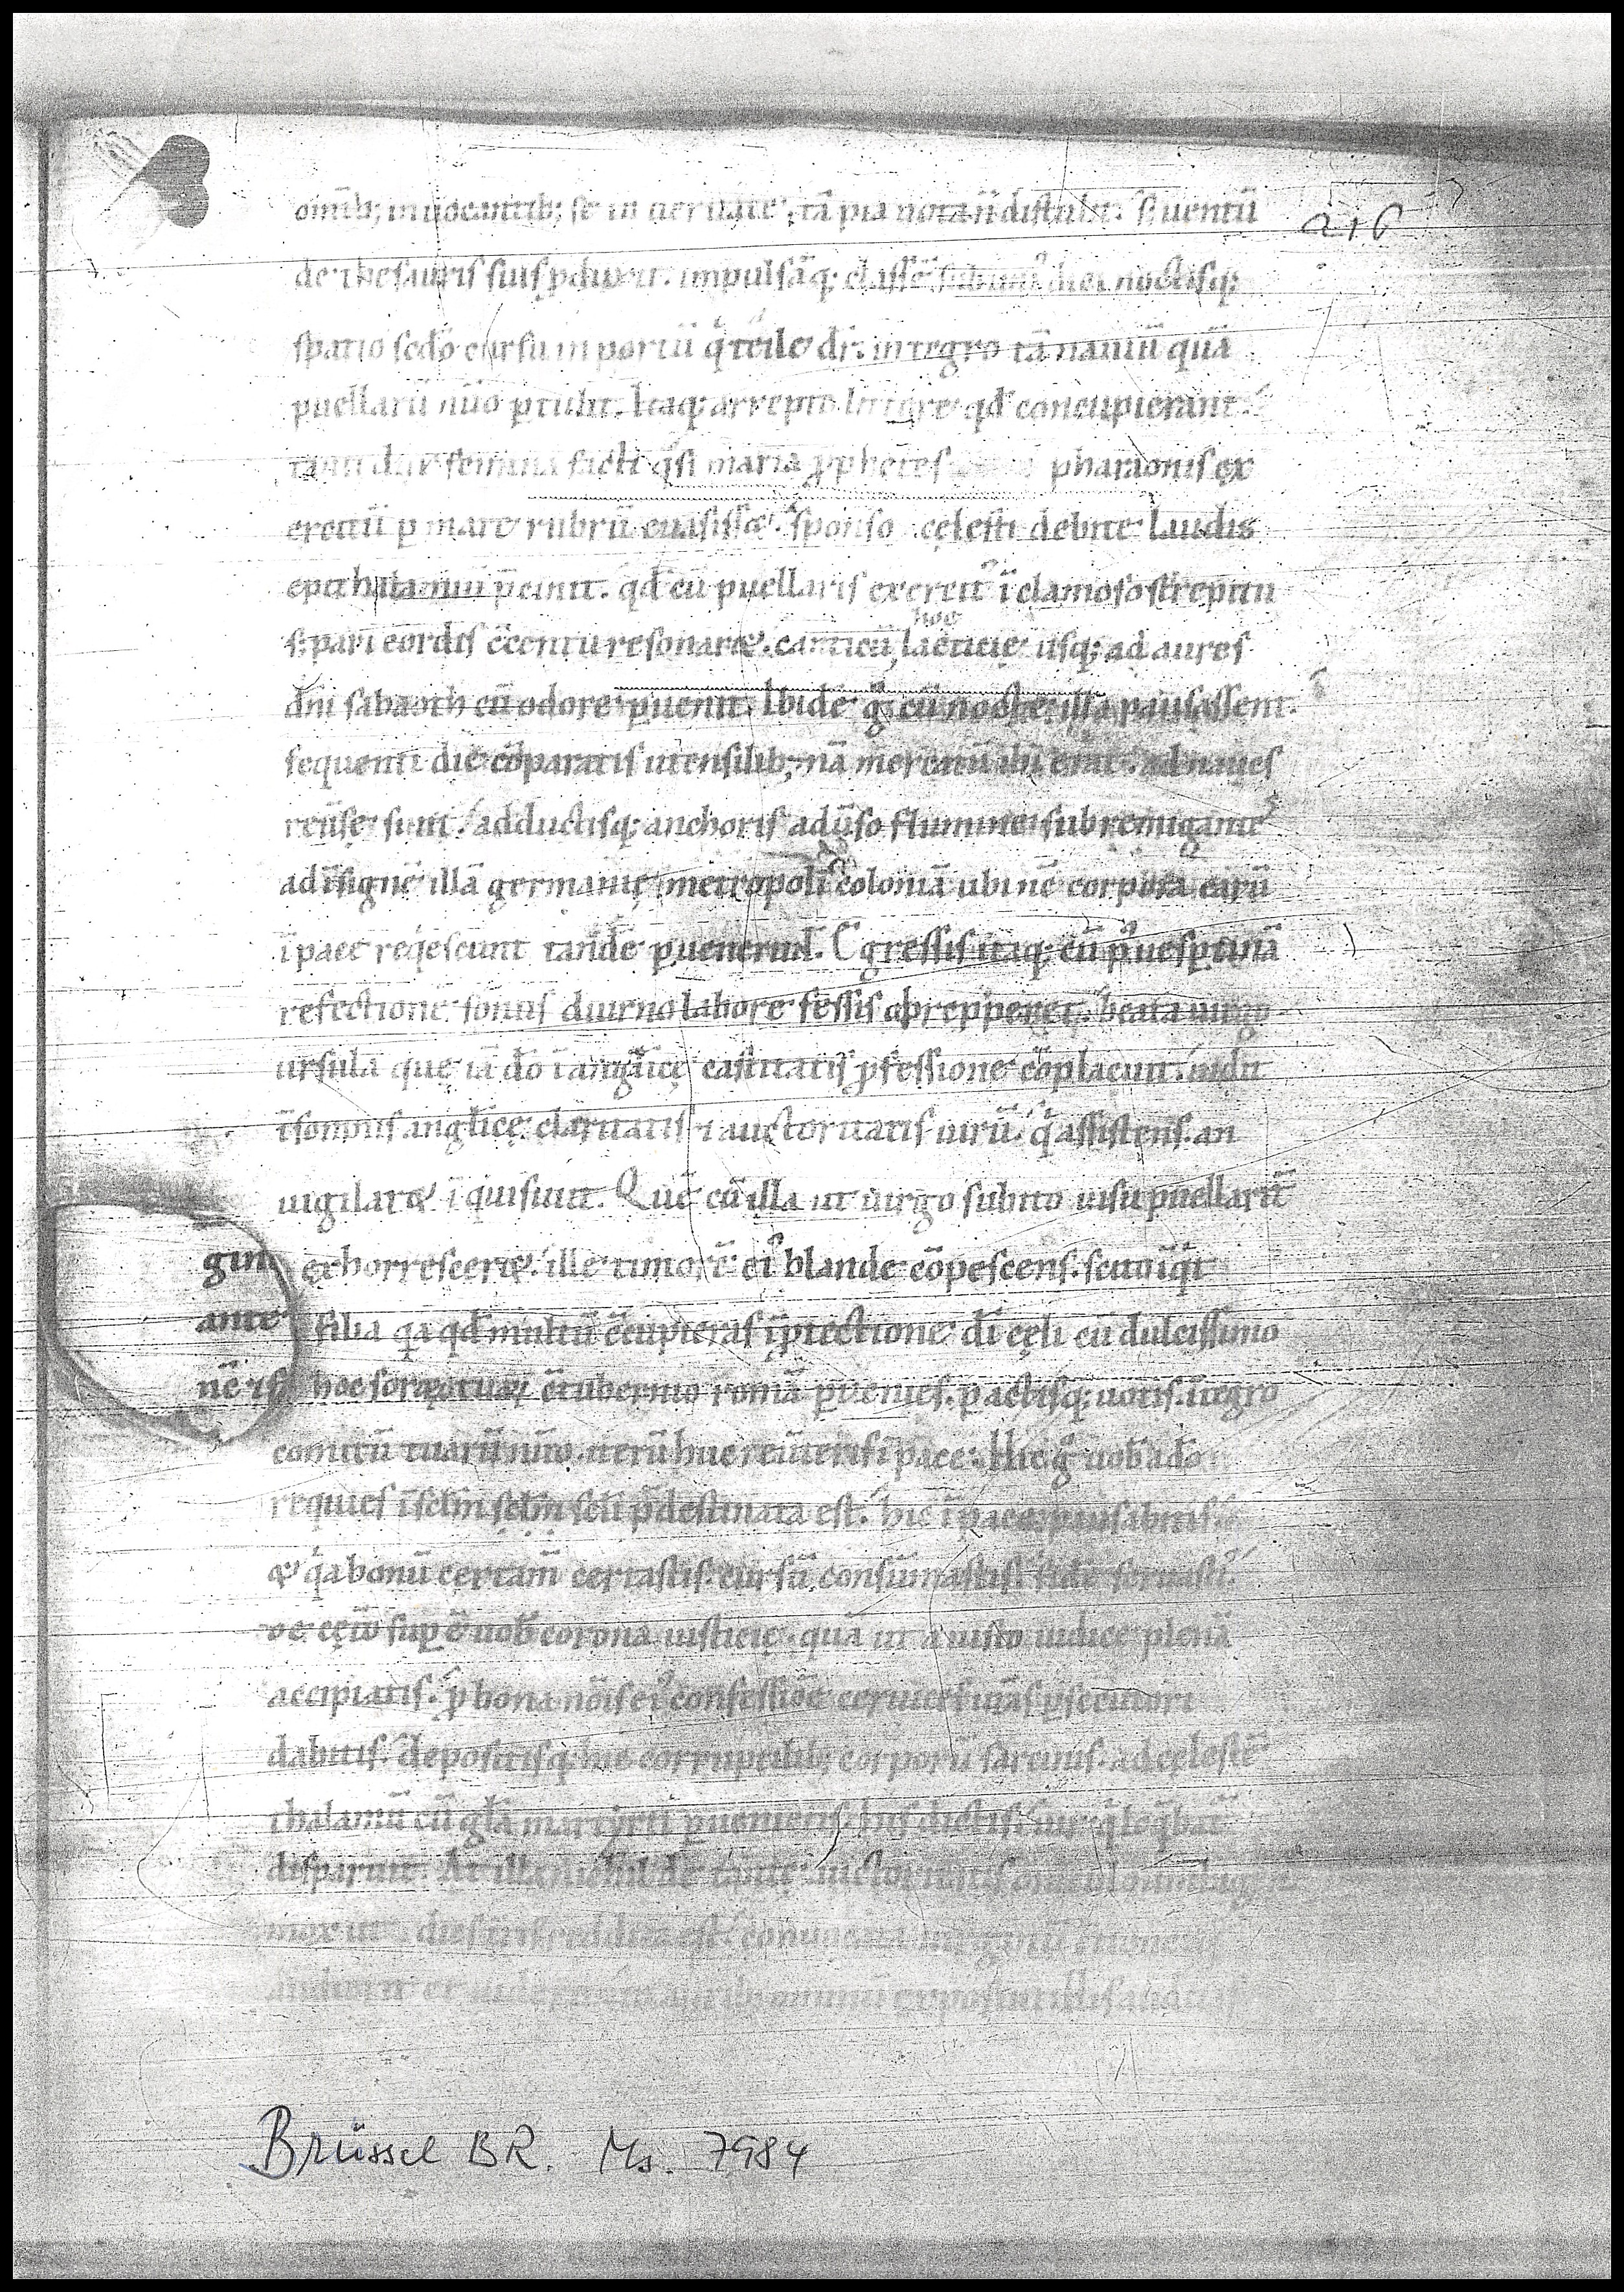 omīb; inuocantib; se in ueritate. tā pia uota ñ distulit. s; uentū
de thesauris suis pduxit. impulsāq; classē diei noctisq;
spatio sedo cursu in portū q̇ teile dr̄. integro tā nauiū quā
puellarū nūo ptulit. Itaq; arrepto littore qd̄ concupierant
femina facti q̇si maria ꝓphetes pharaonis ex
ercitū p mare rubrū euasisse. sponso cęlesti debite laudis
epithalamiū p̄cinit. qd̄ cū puellaris exercit᷒ ī clamoso strepitu
s; pari cordis c̄centu resonaret. canticū hoc laeticię usq; ad aures
dn̄i sabaoth cū odore puenit. Ibidē gͦ cū nocte illa pausassent.
sequenti die c̄oparatis utensilib; nā mercatū ibi erat. ad naues
reūse sunt. adductisq; anchoris adūso flumine subremigantes
ad īsignē illā germanię metropolī coloniā ubi nc̄ corpora earū
ī pace reqescunt tandē puenerunt. Egressis itaq; cū p᷒ uesptinā
refectionē somnus diurno labore fessis obrepperet. beata uirgo
ursula que iā do ī anglicę castitatis ꝓfessione c̄oplacuit. uidit
ī sompnis anglicę claritatis ⁊ auctoritatis uirū. q̇ assistens. an
uigilaret īquisiuit. Quē cū illa ut uirgo subito uisu puellarū
exhorresceret. ille timorē ei᷒ blande cōpescens. scito īqt
filia qa qd̄ multū c̄cupieras ī ptectione di cęli cū dulcissimo
hoc sororū tuarū c̄tubernio romā puenies. pactisq; uotis. ītegro
comitū tuarū nūo. iterū huc reūteris ī pace. Hic gͦ uob ado
requies ī sclm̄ scli p̄destinata est. hic ī pace pausabitis.
et q̇a bonū certam̄ certastis. cursū consūmastis. fidē seruastis.
de cęto̅ sup ē uob corona iusticię. quā ut a iusto iudice plenā
accipiatis. ꝓ bona nōis ei᷒ confessiōe ceruices ūras psecutori
dabitis. depositisq; hic corruptilib; corporū sarcinis. ad cęlestē
thalamū cū gla martyrii puenietis. His dictis. uir q̇ loq̄bat᷒
disparuit. At illa nichil de tantę auctoritatis oraculo
mox ut dies reddita est. conuocata uirginū
gin
ante
nc̄ ⁊ s
216
Brüssel BR. Ms. 7984